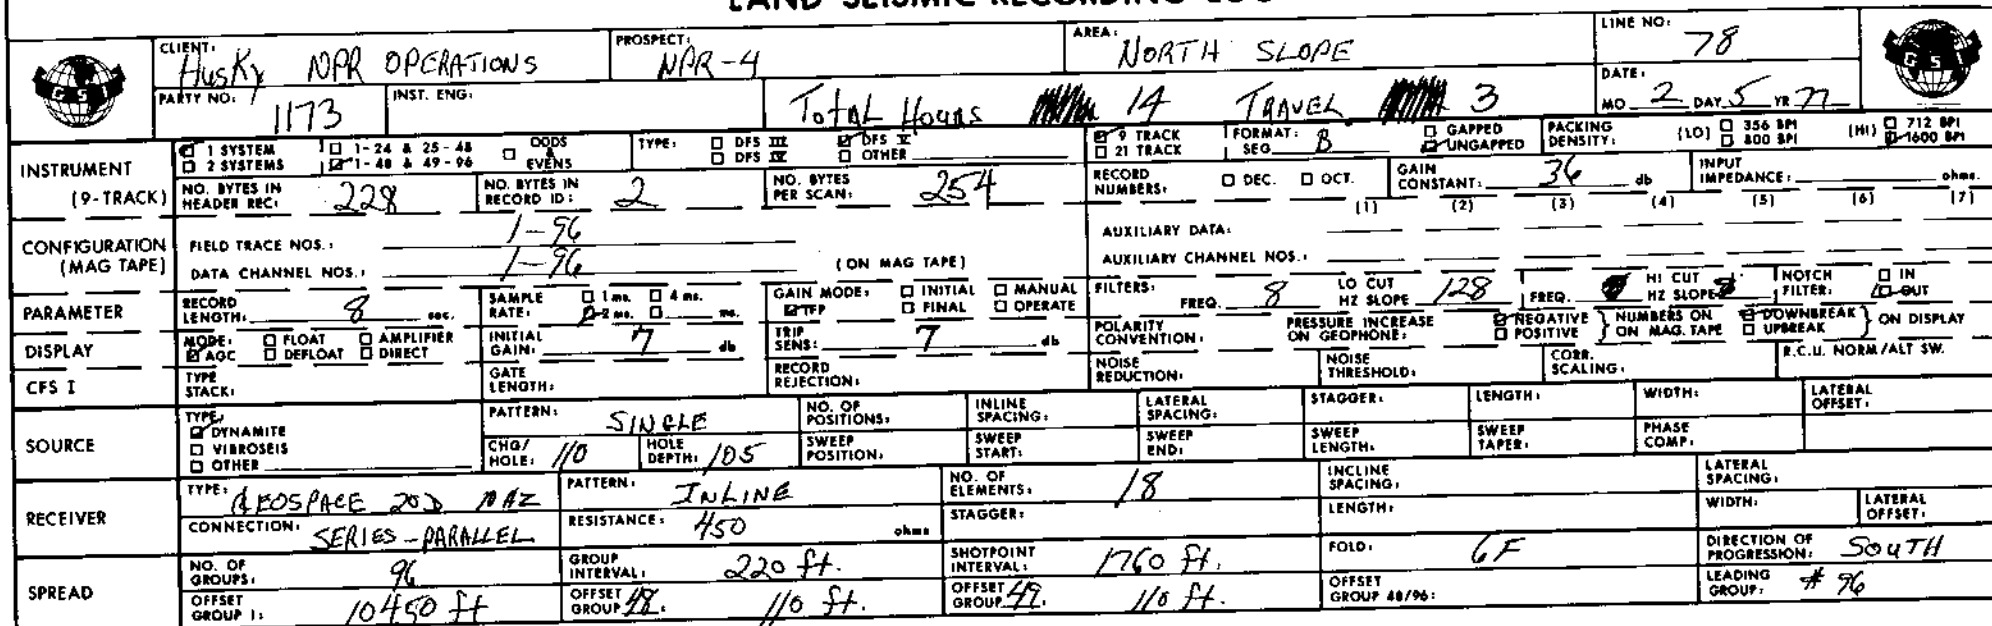 LAND SEISMIC RECORDING LOG
GSI
CLIENT: Husky NPR OPERATIONS PROSPECT: NPR-4 AREA: NORTH SLOPE LINE NO: 78
GSI
PARTY NO: 1173 INST. ENG: Total Hours 14 TRAVEL 3 DATE: MO 2 DAY 5 YR 77
INSTRUMENT (9-TRACK)
1 SYSTEM 1-24 & 25-48 ODDS & EVENS TYPE: DFS III DFS V 9 TRACK FORMAT: SEG B GAPPED PACKING DENSITY: (LO) 356 BPI (HI) 712 BPI
2 SYSTEMS 1-48 & 49-96 DFS IV OTHER 21 TRACK UNGAPPED 800 BPI 1600 BPI
NO. BYTES IN HEADER REC: 228 NO. BYTES IN RECORD ID: 2 NO. BYTES PER SCAN: 254 RECORD NUMBERS: DEC. OCT. GAIN CONSTANT: 36 db INPUT IMPEDANCE: ohms.
(1) (2) (3) (4) (5) (6) (7)
CONFIGURATION (MAG TAPE)
FIELD TRACE NOS.: 1-96 AUXILIARY DATA:
DATA CHANNEL NOS.: 1-96 (ON MAG TAPE) AUXILIARY CHANNEL NOS.:
PARAMETER RECORD LENGTH: 8 sec. SAMPLE RATE: 1 ms. 4 ms. 2 ms. ms. GAIN MODE: INITIAL MANUAL IFP FINAL OPERATE FILTERS: FREQ. 8 LO CUT HZ SLOPE 128 FREQ. HI CUT HZ SLOPE NOTCH FILTER: IN OUT
DISPLAY MODE: FLOAT AMPLIFIER AGC DEFLOAT DIRECT INITIAL GAIN: 7 db TRIP SENS: 7 db POLARITY CONVENTION: PRESSURE INCREASE ON GEOPHONE: NEGATIVE POSITIVE NUMBERS ON ON MAG. TAPE DOWNBREAK UPBREAK ON DISPLAY
CFS I TYPE STACK: GATE LENGTH: RECORD REJECTION: NOISE REDUCTION: NOISE THRESHOLD: CORR. SCALING: R.C.U. NORM/ALT SW.
SOURCE TYPE: DYNAMITE VIBROSEIS OTHER
PATTERN: SINGLE NO. OF POSITIONS: INLINE SPACING: LATERAL SPACING: STAGGER: LENGTH: WIDTH: LATERAL OFFSET:
CHG/HOLE: 110 HOLE DEPTH: 105 SWEEP POSITION: SWEEP START: SWEEP END: SWEEP LENGTH: SWEEP TAPER: PHASE COMP:
RECEIVER TYPE: GEOSPACE 20D PATTERN: INLINE NO. OF ELEMENTS: 18 INCLINE SPACING: LATERAL SPACING:
CONNECTION: SERIES-PARALLEL RESISTANCE: 450 ohms STAGGER: LENGTH: WIDTH: LATERAL OFFSET:
SPREAD NO. OF GROUPS: 96 GROUP INTERVAL: 220 ft. SHOTPOINT INTERVAL: 1760 ft. FOLD: 6F DIRECTION OF PROGRESSION: SOUTH
OFFSET GROUP 1: 10450 ft OFFSET GROUP 48: 110 ft. OFFSET GROUP 49: 110 ft. OFFSET GROUP 48/96: LEADING GROUP: # 96